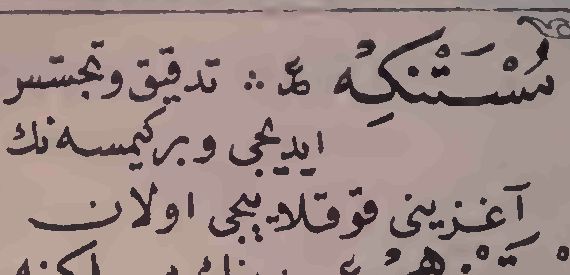 مُسْتَنْكِهْ ع ∴ تدقيق وتجسّس
ايديجى وبركيمسه نك
آغزينى قوقلاييجى اولان